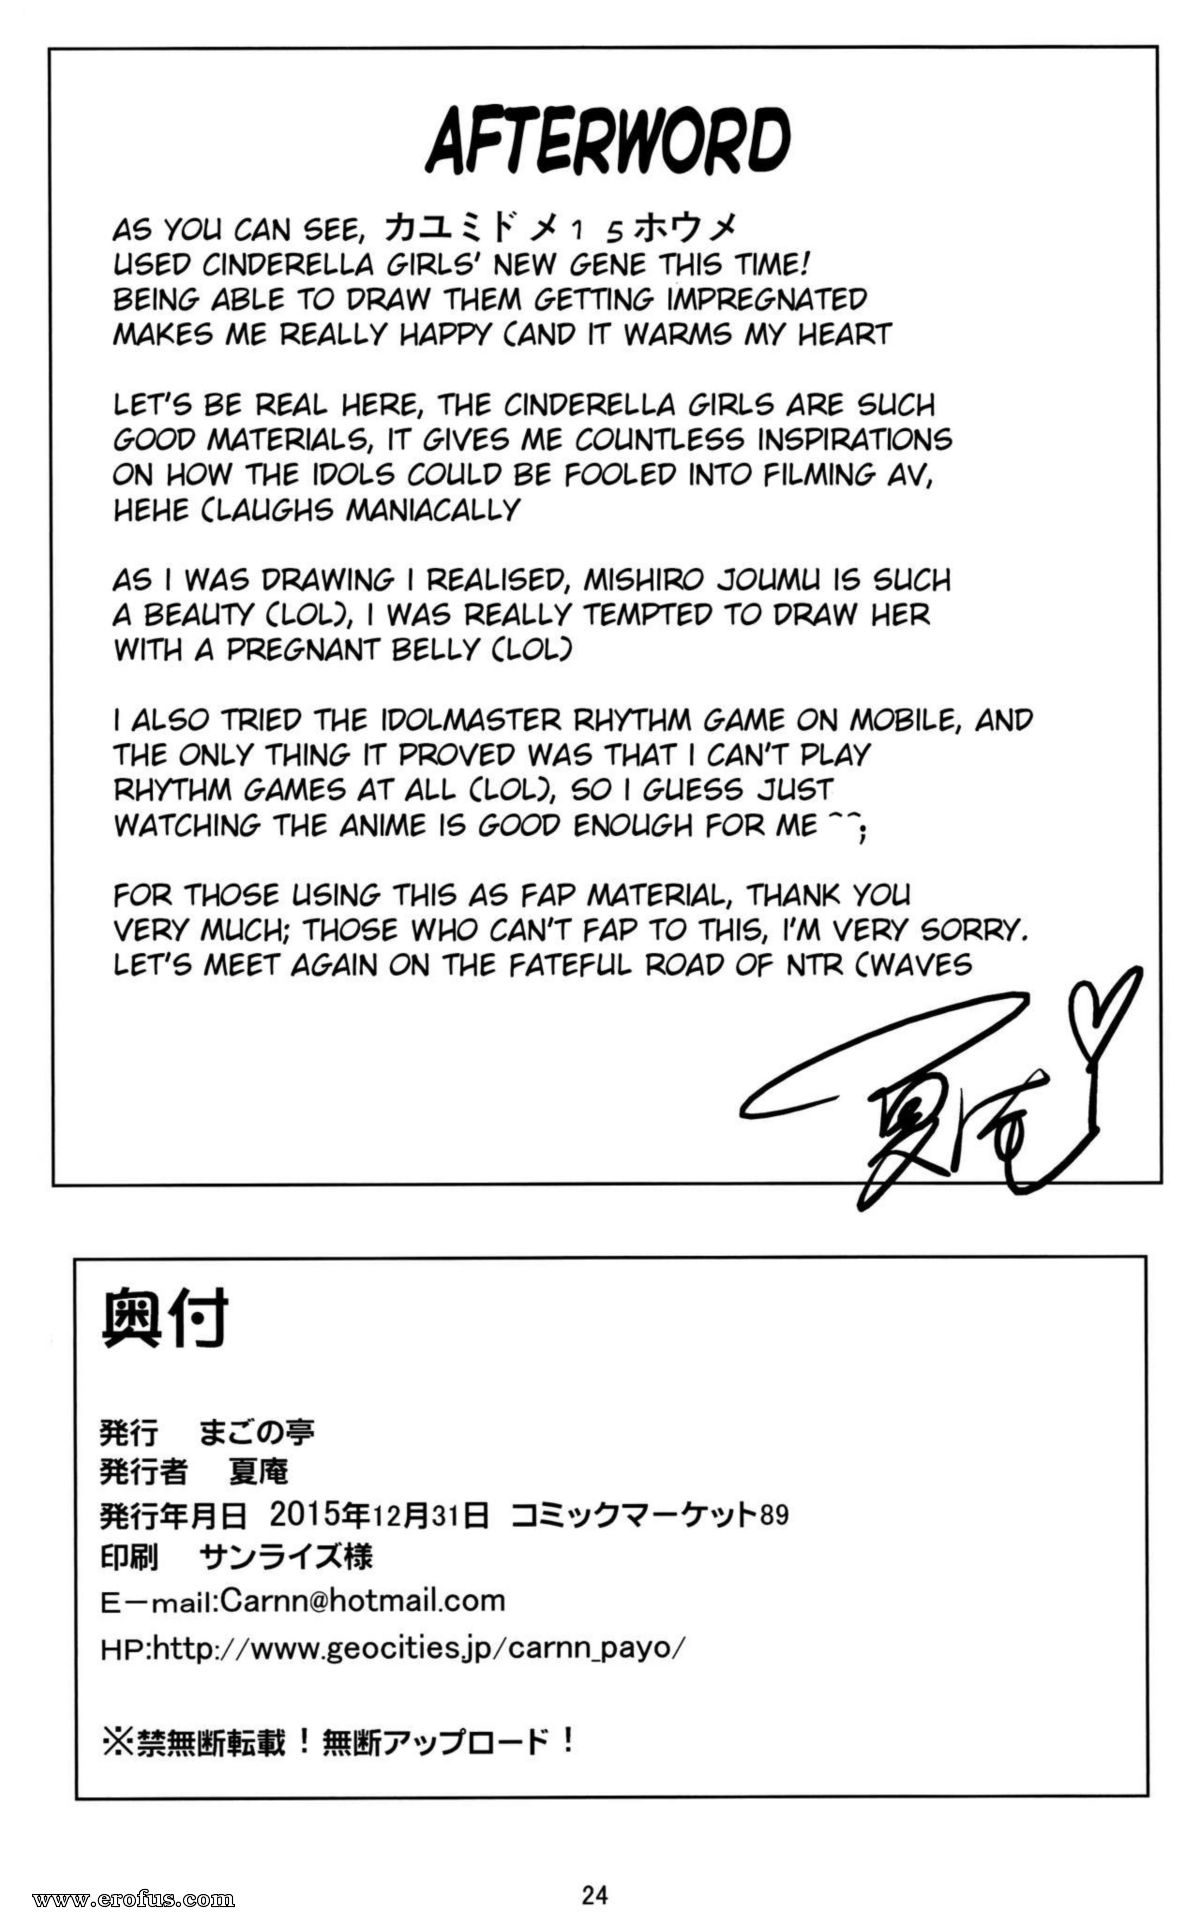 AFTERWORD
AS YOU CAN SEE, カユミドメ15ホウメ
USED CINDERELLA GIRLS' NEW GENE THIS TIME!
BEING ABLE TO DRAW THEM GETTING IMPREGNATED
MAKES ME REALLY HAPPY (AND IT WARMS MY HEART
LET'S BE REAL HERE, THE CINDERELLA GIRLS ARE SUCH
GOOD MATERIALS, IT GIVES ME COUNTLESS INSPIRATIONS
ON HOW THE IDOLS COULD BE FOOLED INTO FILMING AV,
HEHE (LAUGHS MANIACALLY
AS I WAS DRAWING I REALISED, MISHIRO JOUMU IS SUCH
A BEAUTY (LOL), I WAS REALLY TEMPTED TO DRAW HER
WITH A PREGNANT BELLY (LOL)
I ALSO TRIED THE IDOLMASTER RHYTHM GAME ON MOBILE, AND
THE ONLY THING IT PROVED WAS THAT I CAN'T PLAY
RHYTHM GAMES AT ALL (LOL), SO I GUESS JUST
WATCHING THE ANIME IS GOOD ENOUGH FOR ME ^^;
FOR THOSE USING THIS AS FAP MATERIAL, THANK YOU
VERY MUCH; THOSE WHO CAN'T FAP TO THIS, I'M VERY SORRY.
LET'S MEET AGAIN ON THE FATEFUL ROAD OF NTR (WAVES
夏庵
奥付
発行 まごの亭
発行者 夏庵
発行年月日 2015年12月31日 コミックマーケット89
印刷 サンライズ様
E-mail:Carnn@hotmail.com
HP:http://www.geocities.jp/carnn_payo/
※禁無断転載！無断アップロード！
24
www.erofus.com